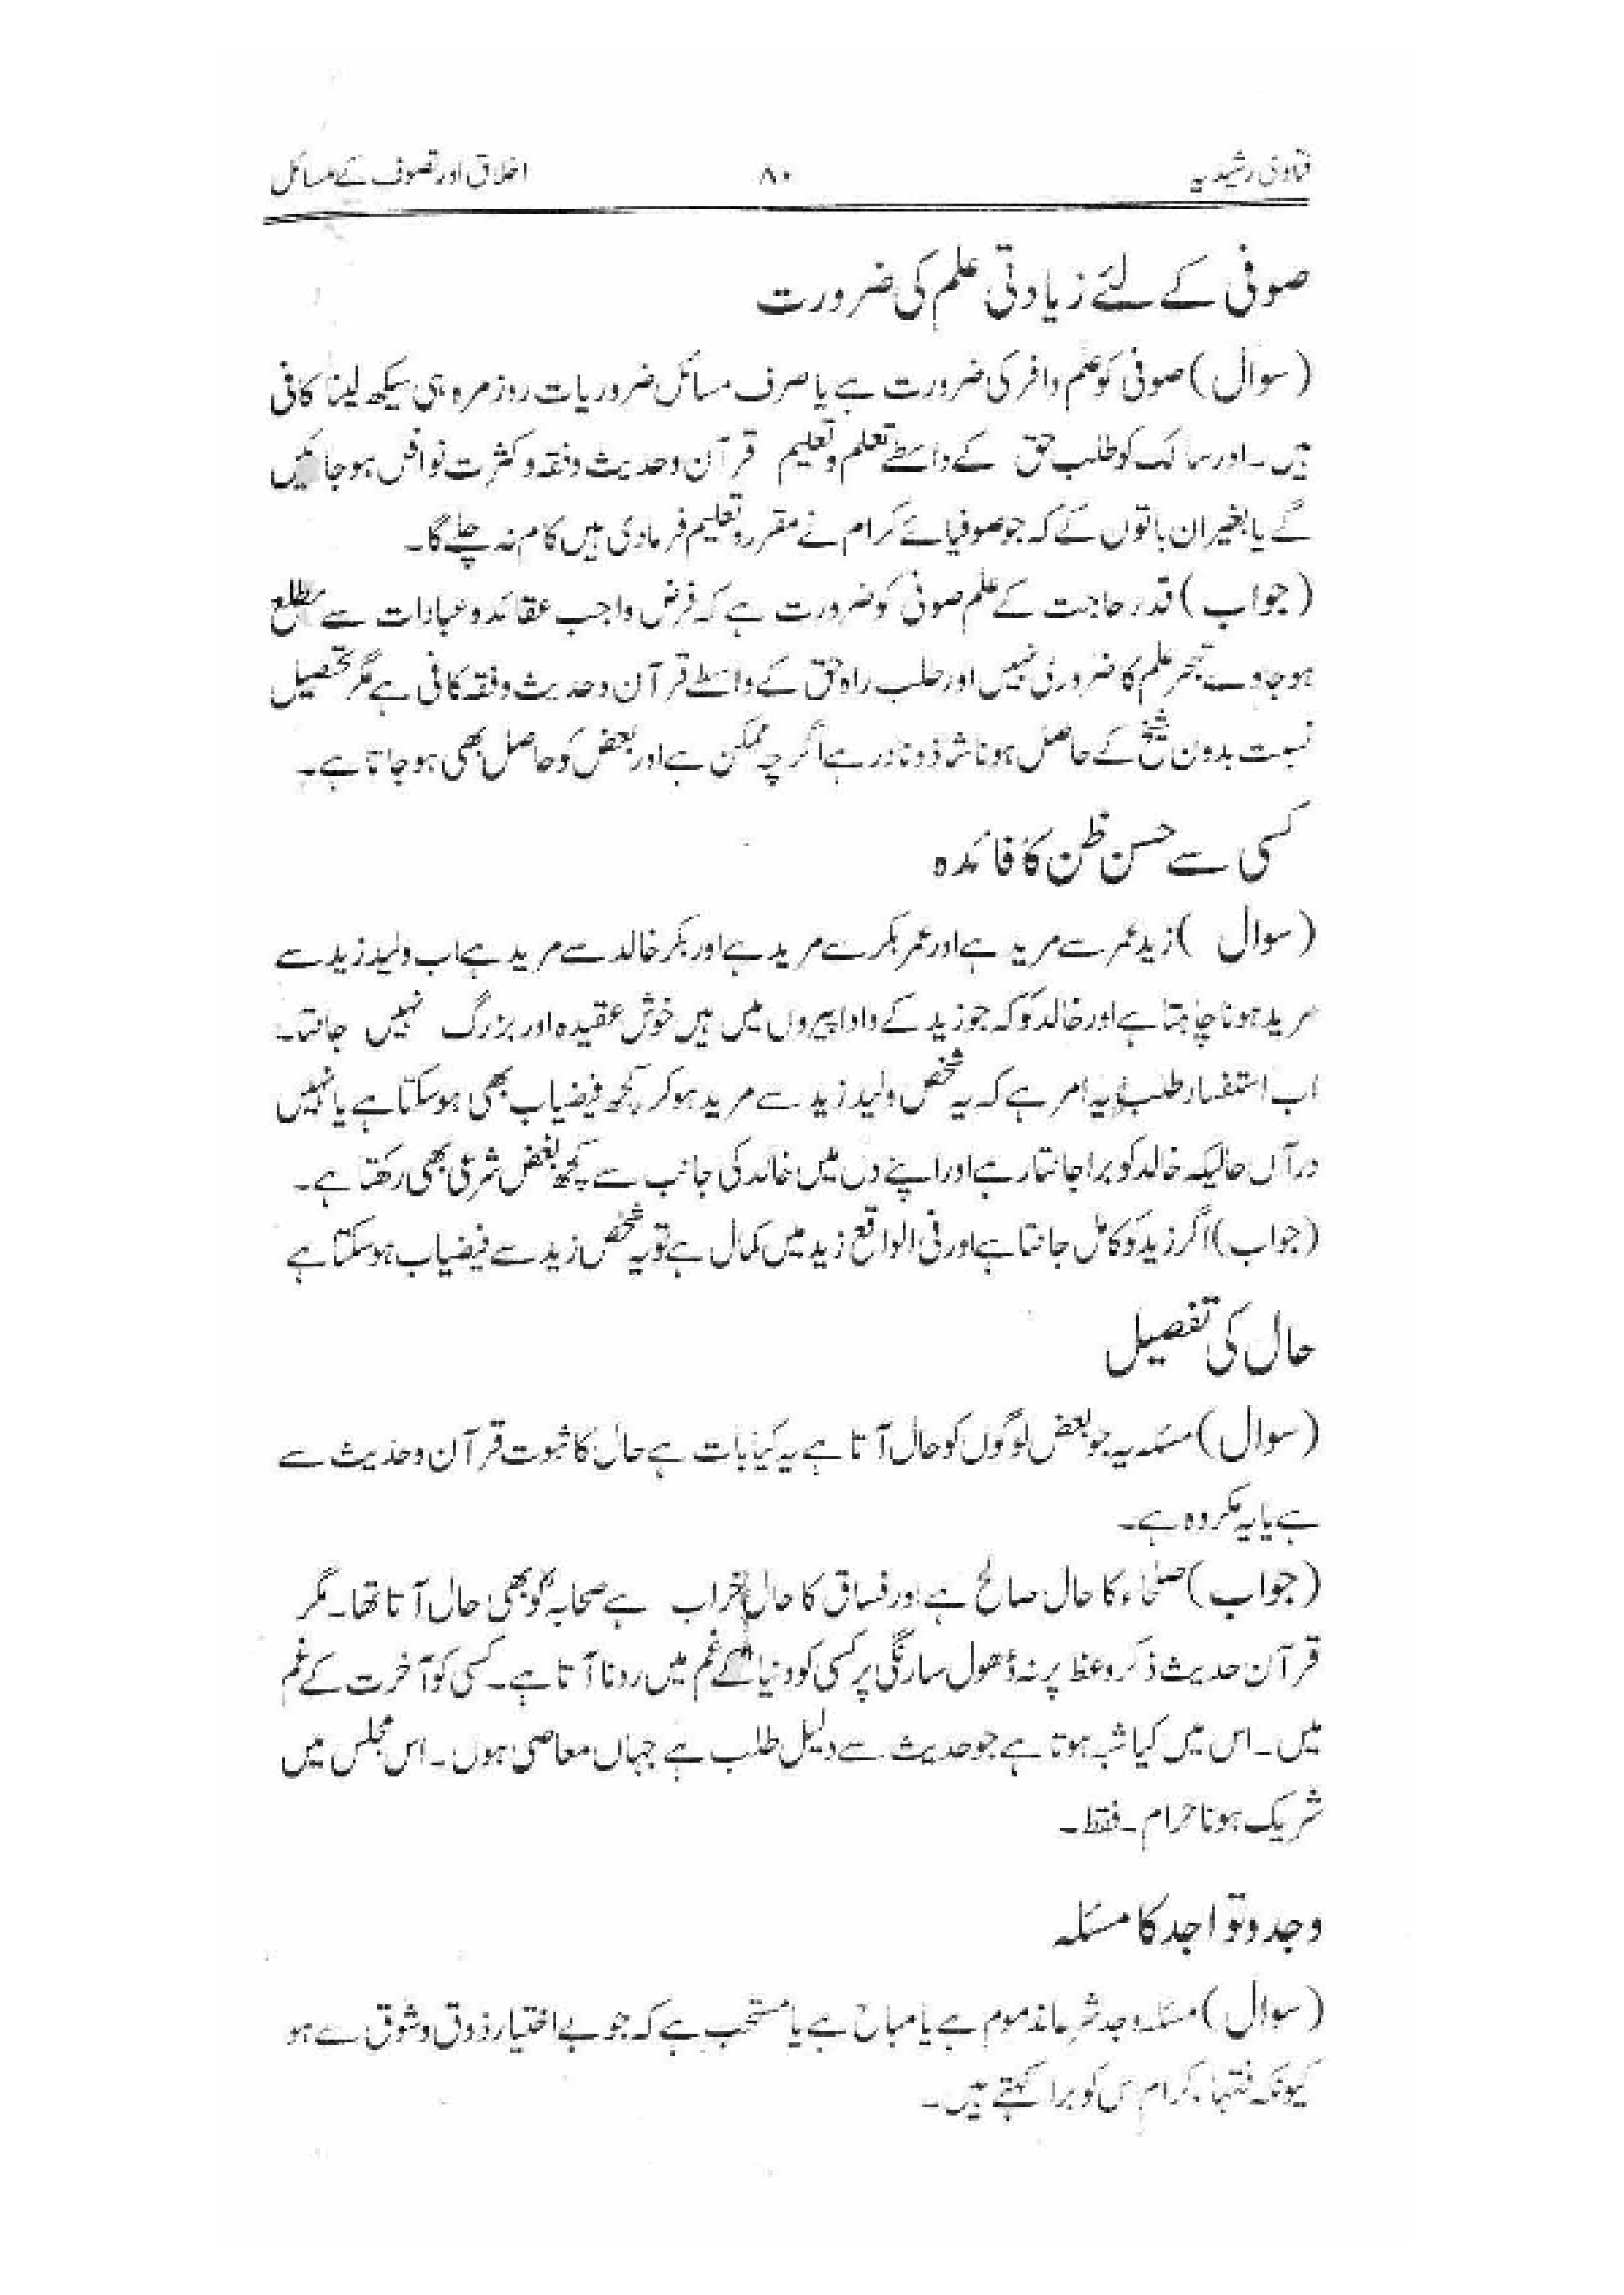 فتاویٰ رشیدیہ ۸۰ اخلاق اور تصوف کے مسائل
صوفی کے لئے زیادتی علم کی ضرورت
(سوال) صوفی کو علم وافر کی ضرورت ہے یا صرف مسائل ضروریات روزمرہ ہی سیکھ لینا کافی
ہیں۔ اور سالک کو طلب حق کے واسطے تعلم وتعلیم قرآن وحدیث وفقہ وکثرت نوافل ہوجائیں
گے یا بغیر ان باتوں کے کہ جو صوفیائے کرام نے مقرر وتعلیم فرمادی ہیں کام نہ چلے گا۔
(جواب) قدر حاجت کے علم صوفی کو ضرورت ہے کہ فرض واجب عقائد وعبادات سے مطلع
ہوجاوے تبحر علم کا ضروری نہیں اور طلب راہ حق کے واسطے قرآن وحدیث وفقہ کافی ہے مگر تحصیل
نسبت بدون شیخ کے حاصل ہونا شاذ ونادر ہے اگر چہ ممکن ہے اور بعض کو حاصل بھی ہوجاتا ہے۔
کسی سے حسن ظن کا فائدہ
(سوال) زید عمر سے مرید ہے اور عمر بکر سے مرید ہے اور بکر خالد سے مرید ہے اب ولید زید سے
مرید ہونا چاہتا ہے اور خالد کو کہ جو زید کے دادا پیروں میں ہیں خوش عقیدہ اور بزرگ نہیں جانتا۔
اب استفسار طلب یہ امر ہے کہ یہ شخص ولید زید سے مرید ہوکر کچھ فیضیاب بھی ہوسکتا ہے یا نہیں
درآں حالیکہ خالد کو برا جانتا رہے اور اپنے دل میں خالد کی جانب سے کچھ بغض شرعی بھی رکھتا ہے۔
(جواب) اگر زید کو کامل جانتا ہے اور فی الواقع زید میں کمال ہے تو یہ شخص زید سے فیضیاب ہوسکتا ہے
حال کی تفصیل
(سوال) مسئلہ یہ جو بعض لوگوں کو حال آتا ہے یہ کیا بات ہے حال کا ثبوت قرآن وحدیث سے
ہے یا یہ مکروہ ہے۔
(جواب) صلحاء کا حال صالح ہے اور فساق کا حال خراب ہے صحابہ کو بھی حال آتا تھا۔ مگر
قرآن حدیث ذکر وعظ پر نہ ڈھول سارنگی پر کسی کو دنیا کے غم میں رونا آتا ہے۔ کسی کو آخرت کے غم
میں۔ اس میں کیا شبہ ہوتا ہے جو حدیث سے دلیل طلب ہے جہاں معاصی ہوں۔ اس مجلس میں
شریک ہونا حرام۔ فقط۔
وجد وتواجد کا مسئلہ
(سوال) مسئلہ وجد شرعا مذموم ہے یا مباح ہے یا مستحب ہے کہ جو بے اختیار ذوق وشوق سے ہو
کیونکہ فقہاء کرام اس کو برا کہتے ہیں۔